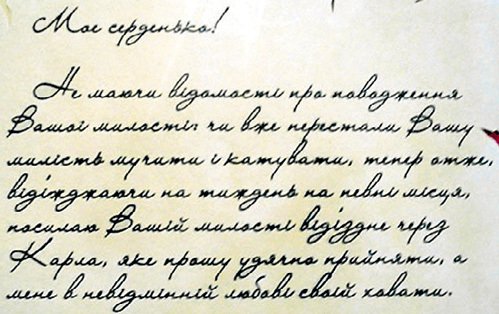 Моє серденько!
Не маючи відомості про поводження
Вашої милості: чи вже перестали Вашу
милість мучити і катувати, тепер отже,
від'їжджаючи на тиждень на певні місця,
посилаю Вашій милості від'їздне через
Карла, яке прошу удячно прийняти, а
мене в невідмінній любові своїй ховати.